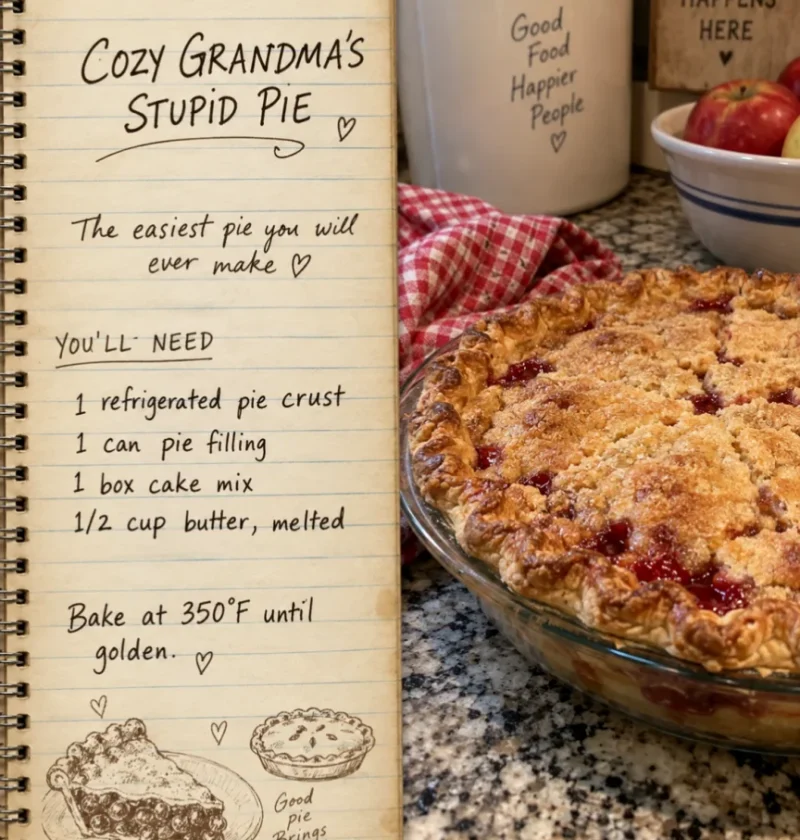 COZY GRANDMA'S
STUPID PIE
The easiest pie you will
ever make
YOU'LL NEED
1 refrigerated pie crust
1 can pie filling
1 box cake mix
1/2 cup butter, melted
Bake at 350°F until
golden.
Good
pie
Brings
Good
Food
Happier
People
HAPPENS
HERE